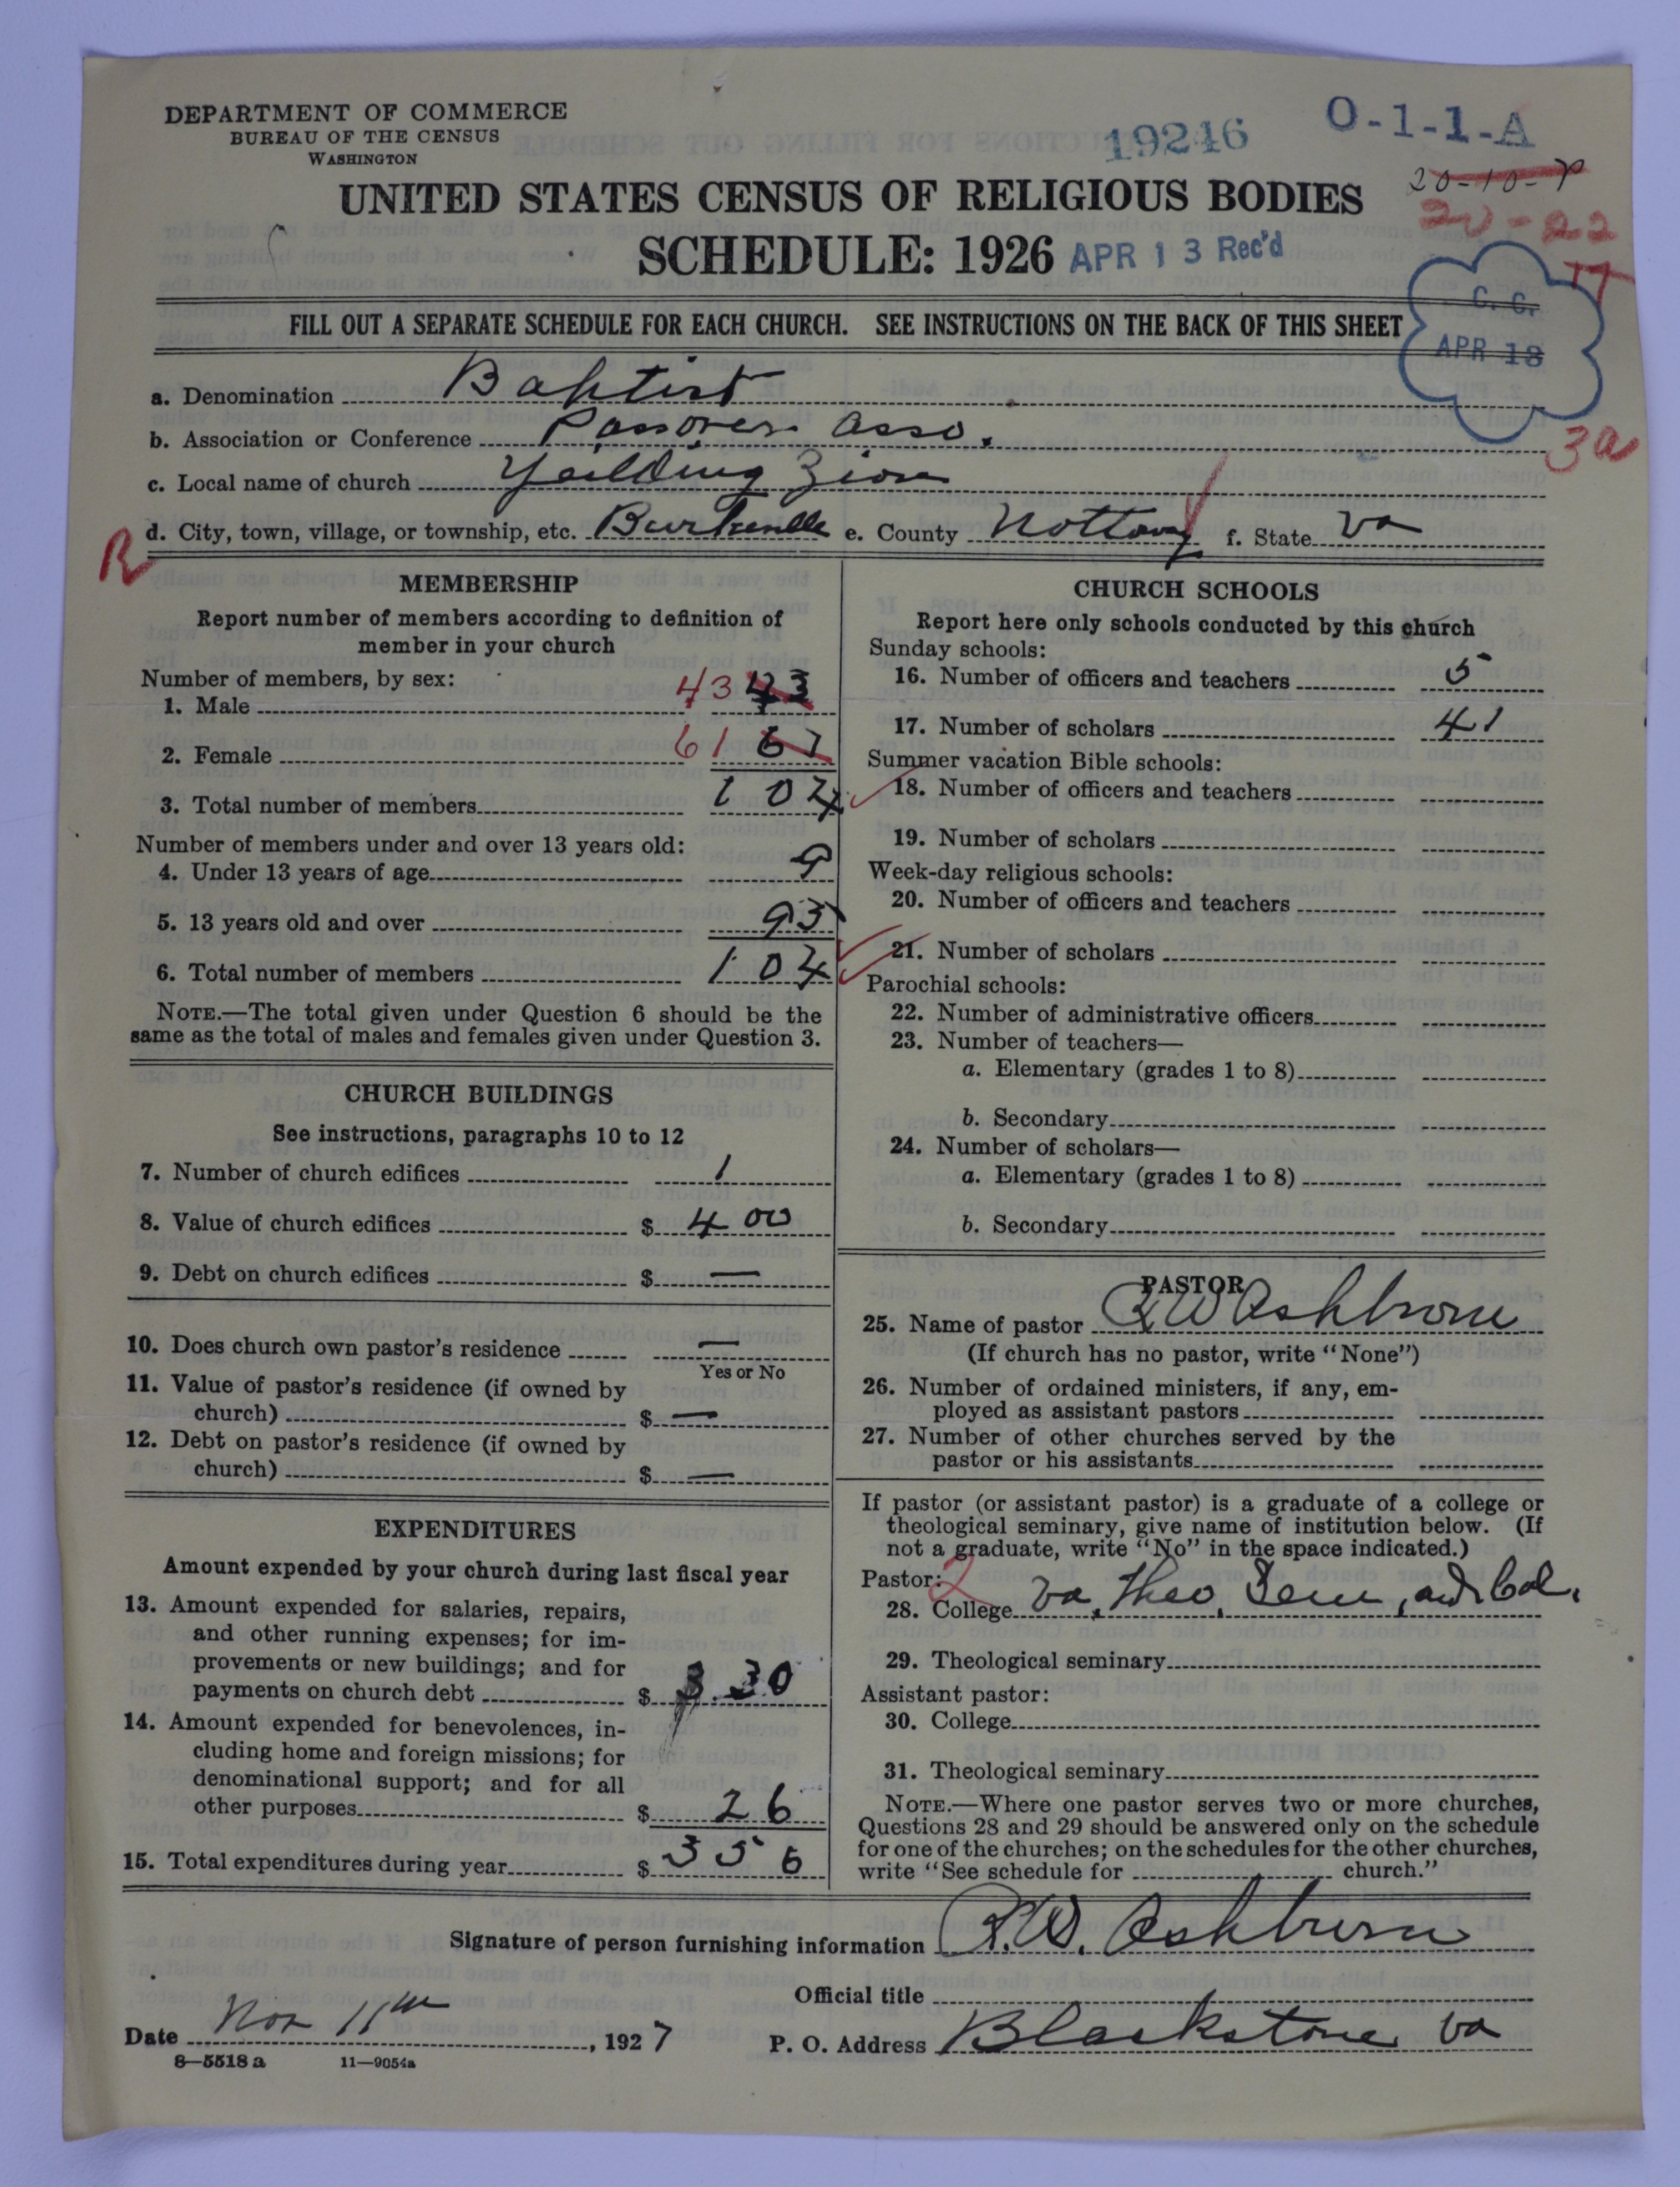 DEPARTMENT OF COMMERCE
BUREAU OF THE CENSUS
WASHINGTON
19246
O-1-1-A
20-10-
20-22
17
UNITED STATES CENSUS OF RELIGIOUS BODIES
SCHEDULE: 1926
APR 13 Rec'd
C. C.
APR 18
FILL OUT A SEPARATE SCHEDULE FOR EACH CHURCH. SEE INSTRUCTIONS ON THE BACK OF THIS SHEET
a. Denomination Baptist
b. Association or Conference Passover Asso.
3a
c. Local name of church Yeilding Zion
d. City, town, village, or township, etc. Burkeville e. County Nottoway f. State Va
R
MEMBERSHIP
Report number of members according to definition of
member in your church
Number of members, by sex:
1. Male 43 43
2. Female 61 61
3. Total number of members 104
Number of members under and over 13 years old:
4. Under 13 years of age 9
5. 13 years old and over 95
6. Total number of members 104
NOTE.—The total given under Question 6 should be the
same as the total of males and females given under Question 3.
CHURCH BUILDINGS
See instructions, paragraphs 10 to 12
7. Number of church edifices 1
8. Value of church edifices $ 400
9. Debt on church edifices $ —
10. Does church own pastor's residence —
Yes or No
11. Value of pastor's residence (if owned by
church) $ —
12. Debt on pastor's residence (if owned by
church) $ —
EXPENDITURES
Amount expended by your church during last fiscal year
13. Amount expended for salaries, repairs,
and other running expenses; for im-
provements or new buildings; and for
payments on church debt $ 330
14. Amount expended for benevolences, in-
cluding home and foreign missions; for
denominational support; and for all
other purposes $ 26
15. Total expenditures during year $ 356
CHURCH SCHOOLS
Report here only schools conducted by this church
Sunday schools:
16. Number of officers and teachers 5
17. Number of scholars 41
Summer vacation Bible schools:
18. Number of officers and teachers
19. Number of scholars
Week-day religious schools:
20. Number of officers and teachers
21. Number of scholars
Parochial schools:
22. Number of administrative officers
23. Number of teachers—
a. Elementary (grades 1 to 8)
b. Secondary
24. Number of scholars—
a. Elementary (grades 1 to 8)
b. Secondary
PASTOR
25. Name of pastor R W Ashburn
(If church has no pastor, write "None")
26. Number of ordained ministers, if any, em-
ployed as assistant pastors
27. Number of other churches served by the
pastor or his assistants
If pastor (or assistant pastor) is a graduate of a college or
theological seminary, give name of institution below. (If
not a graduate, write "No" in the space indicated.)
Pastor: 2
28. College Va. Theo. Sem, and Col.
29. Theological seminary
Assistant pastor:
30. College
31. Theological seminary
NOTE.—Where one pastor serves two or more churches,
Questions 28 and 29 should be answered only on the schedule
for one of the churches; on the schedules for the other churches,
write "See schedule for church."
Signature of person furnishing information R.W. Ashburn
Official title
Date Nov 11th, 1927 P. O. Address Blackstone Va
8—5518 a 11—9054a